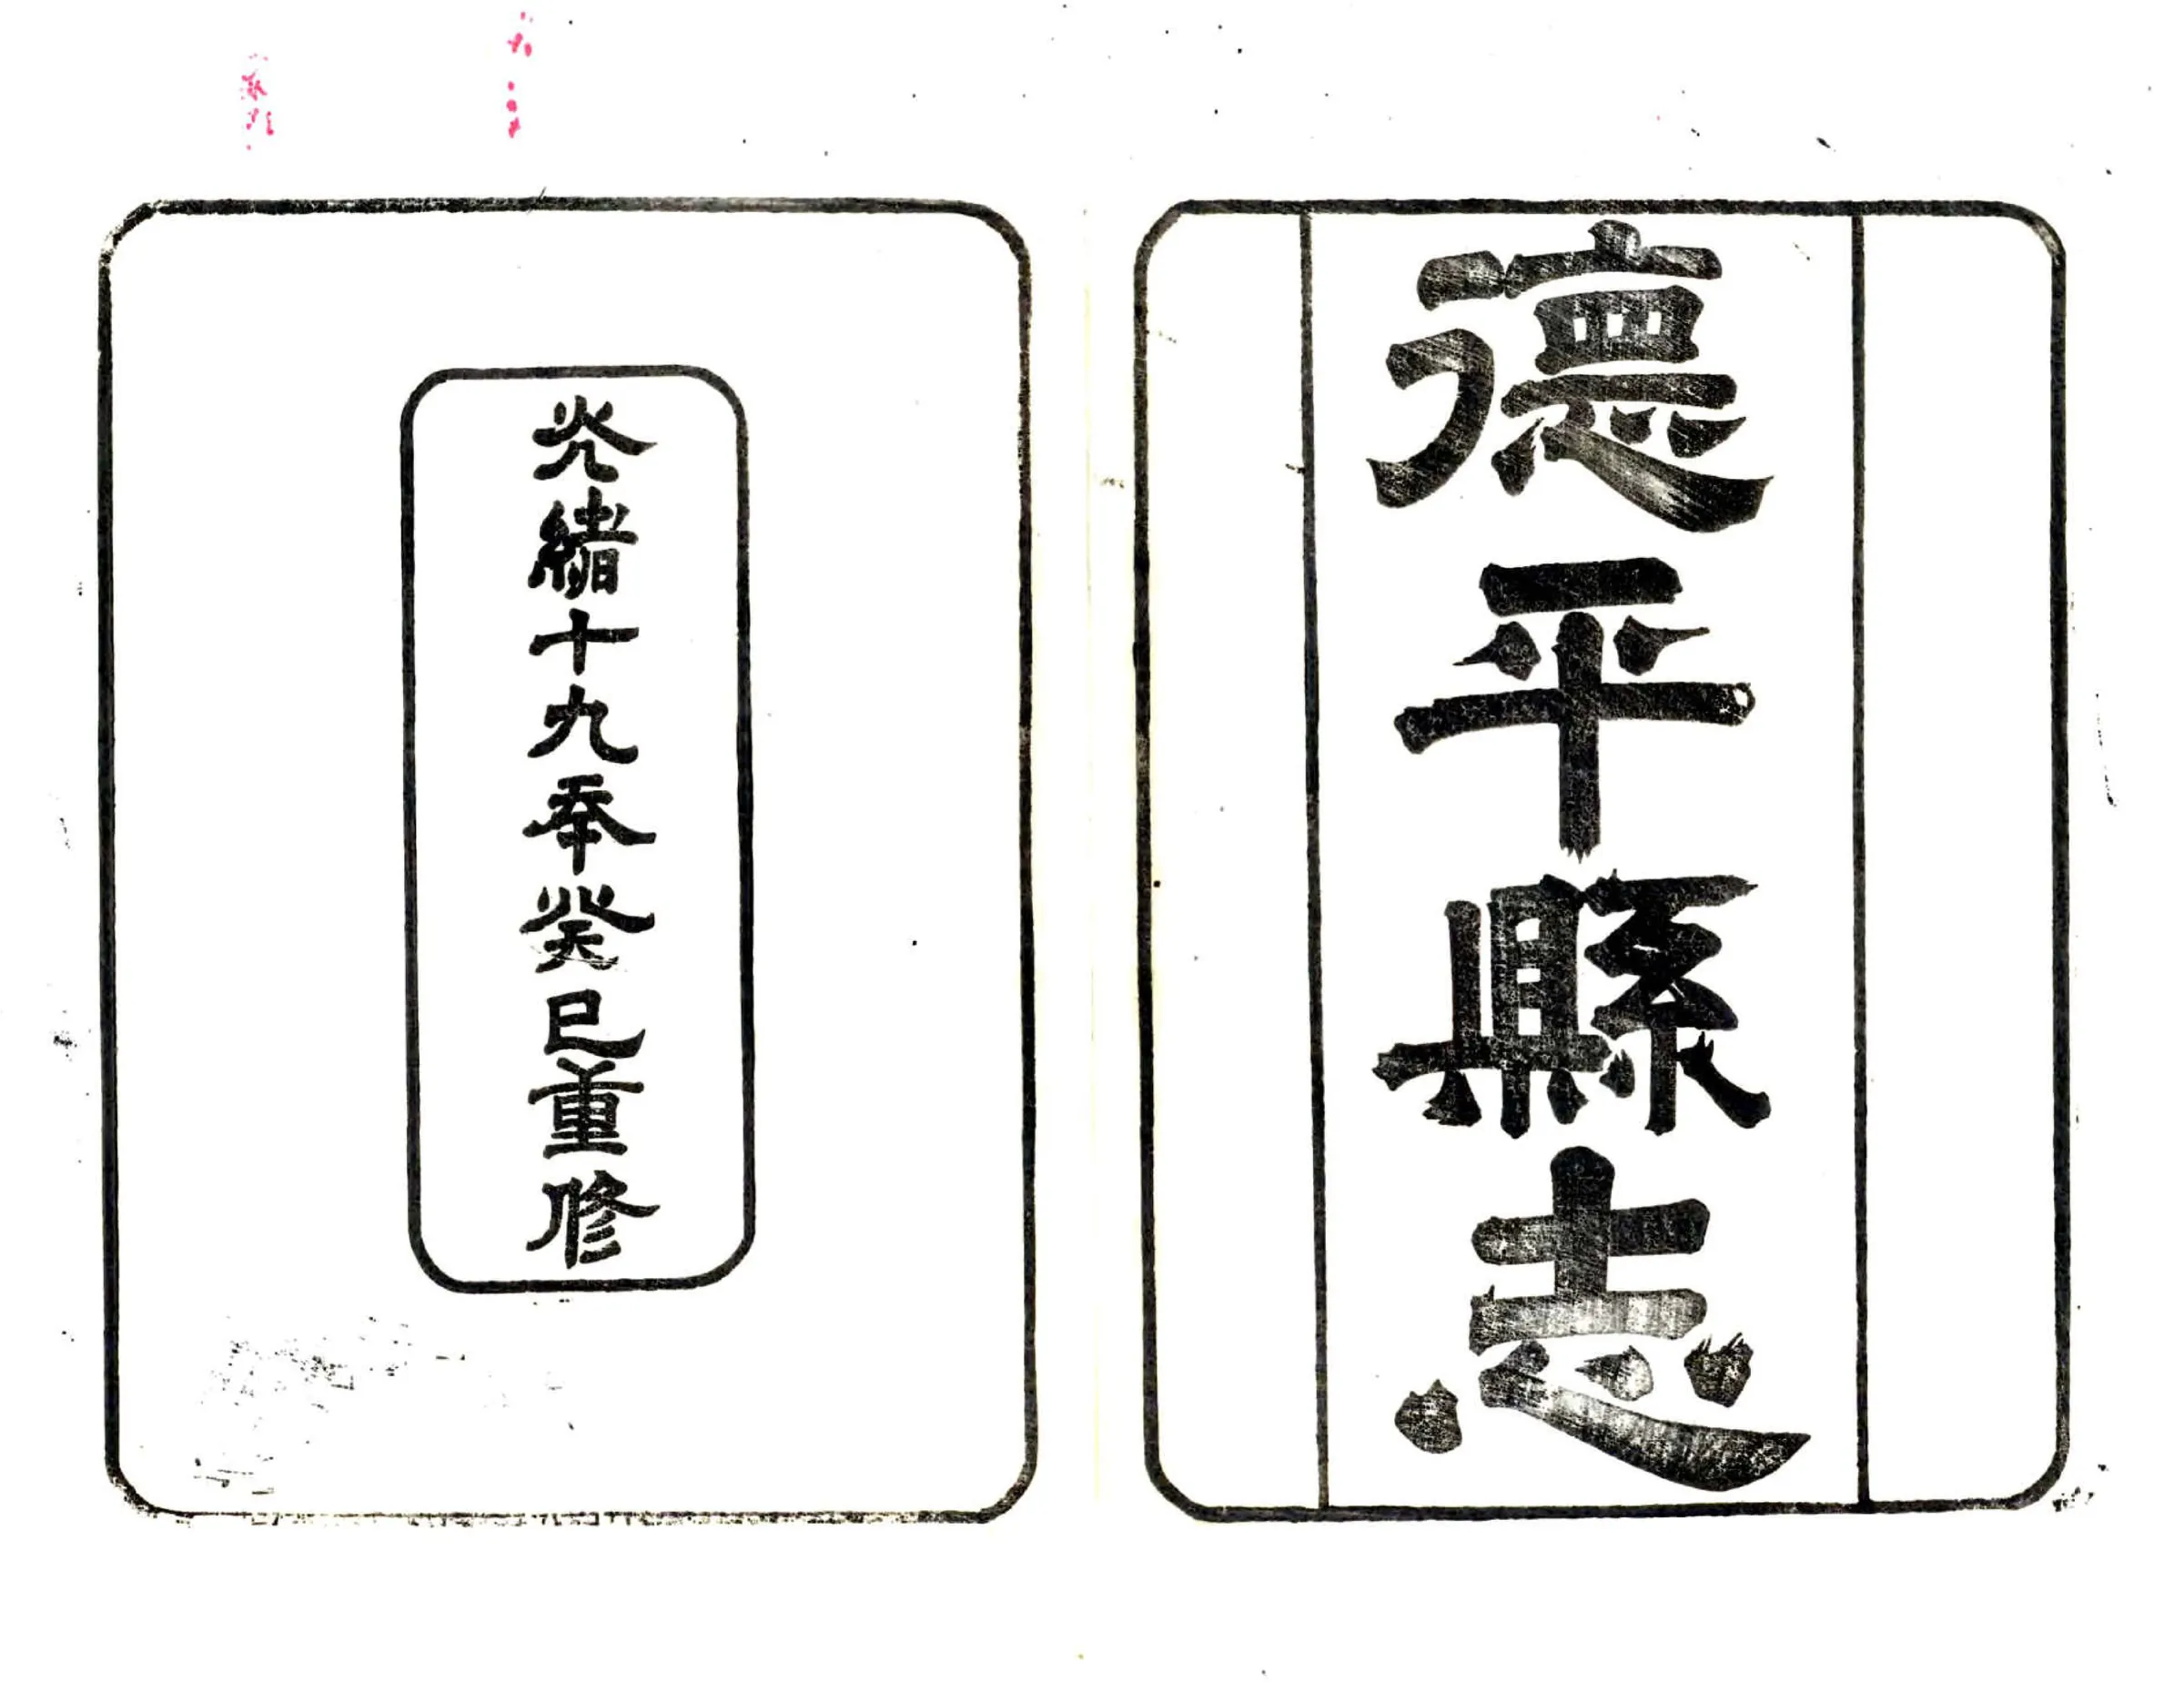 德平縣志
光緒十九年癸巳重修